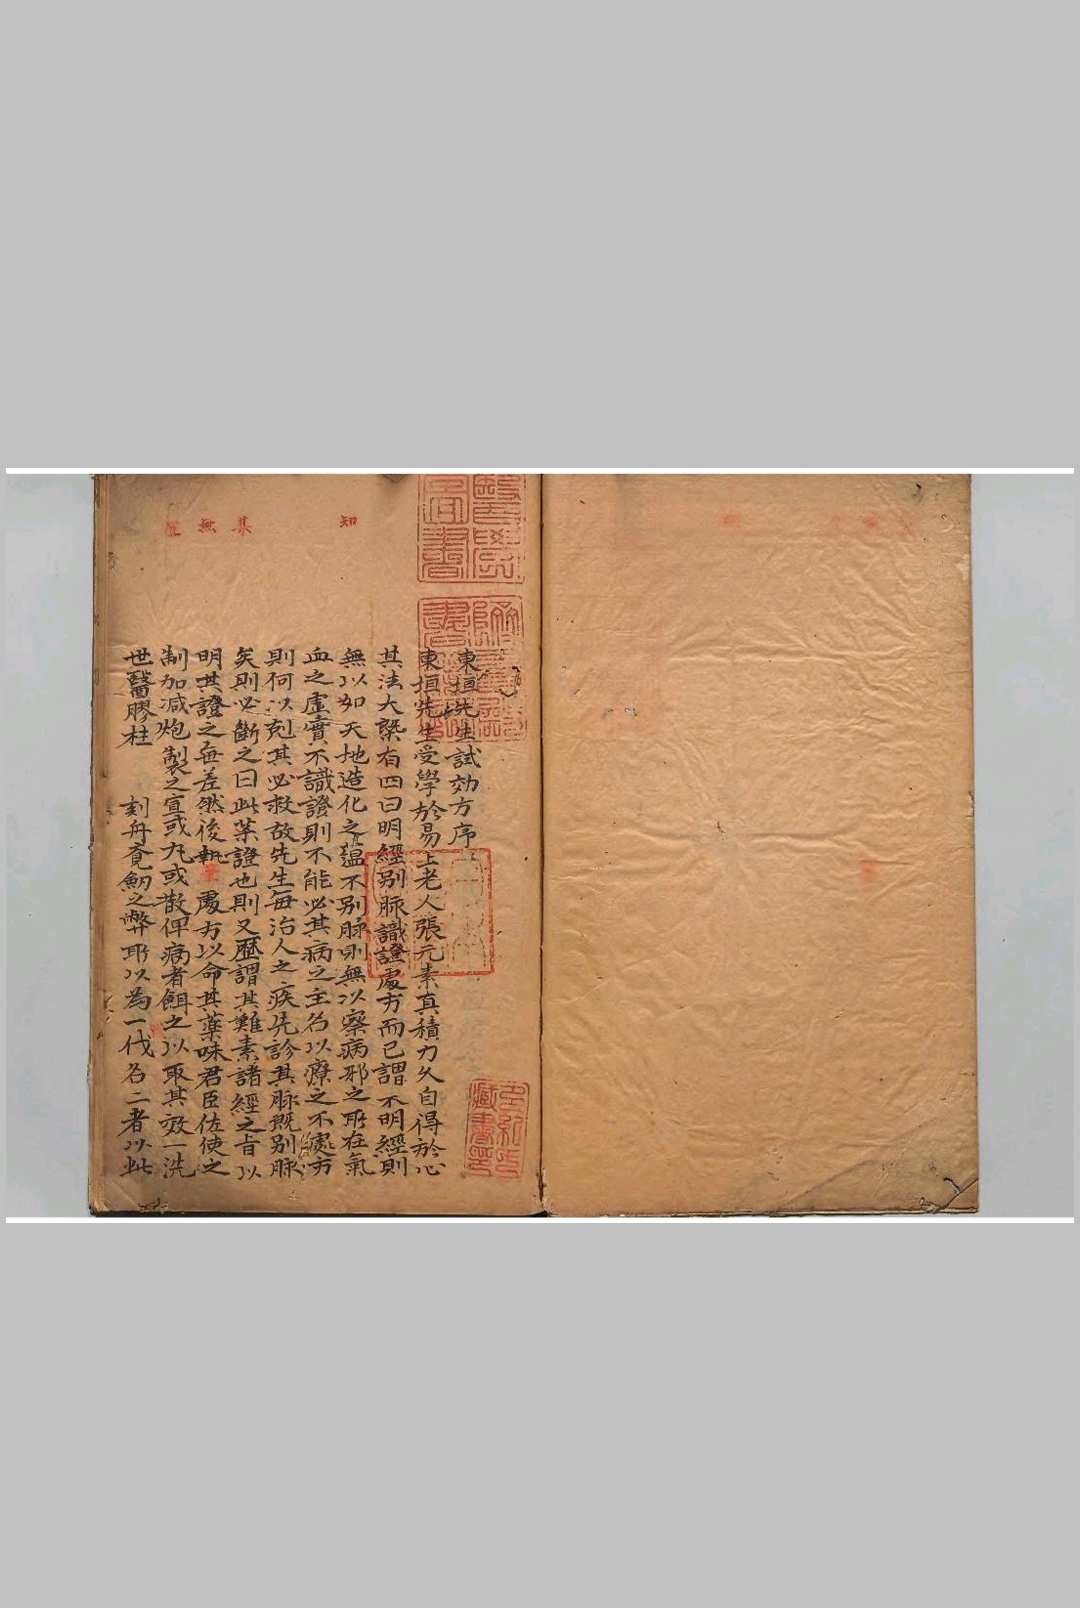 東垣先生試効方序
東垣先生受學於易上老人張元素真積力久自得於心
其法大槩有四曰明經别脉識證處方而已謂不明經則
無以知天地造化之蘊不别脉則無以察病邪之所在氣
血之虚實不識證則不能必其病之主名以療之不處方
則何以剋其必救故先生每治人之疾先診其脉既别脉
矣則必斷之曰此某證也則又歷謂其難素諸經之旨以
明其證之無差然後執筆處方以命其藥味君臣佐使之
制加减炮製之宜或丸或散俾病者餌之以取其效一洗
世醫膠柱 刻舟覔劒之弊所以為一代名二者以此
知
集
無
醫學
圖書
藏書